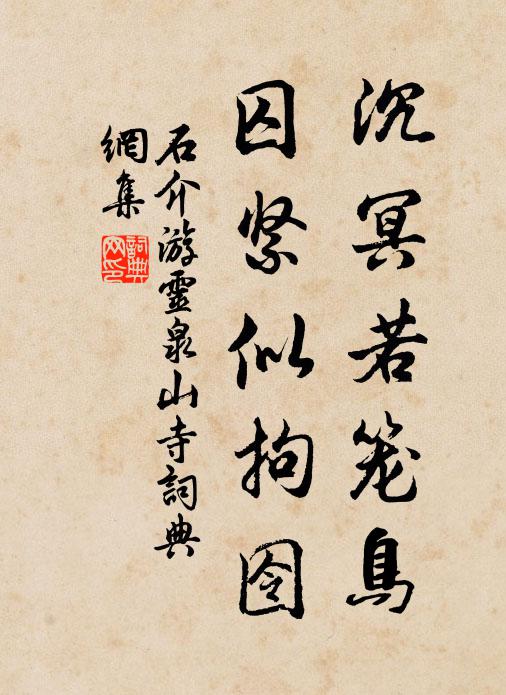 沉冥若笼鳥
囚紧似拘囹
石介游靈泉山寺詞典
網集
詞典
网印